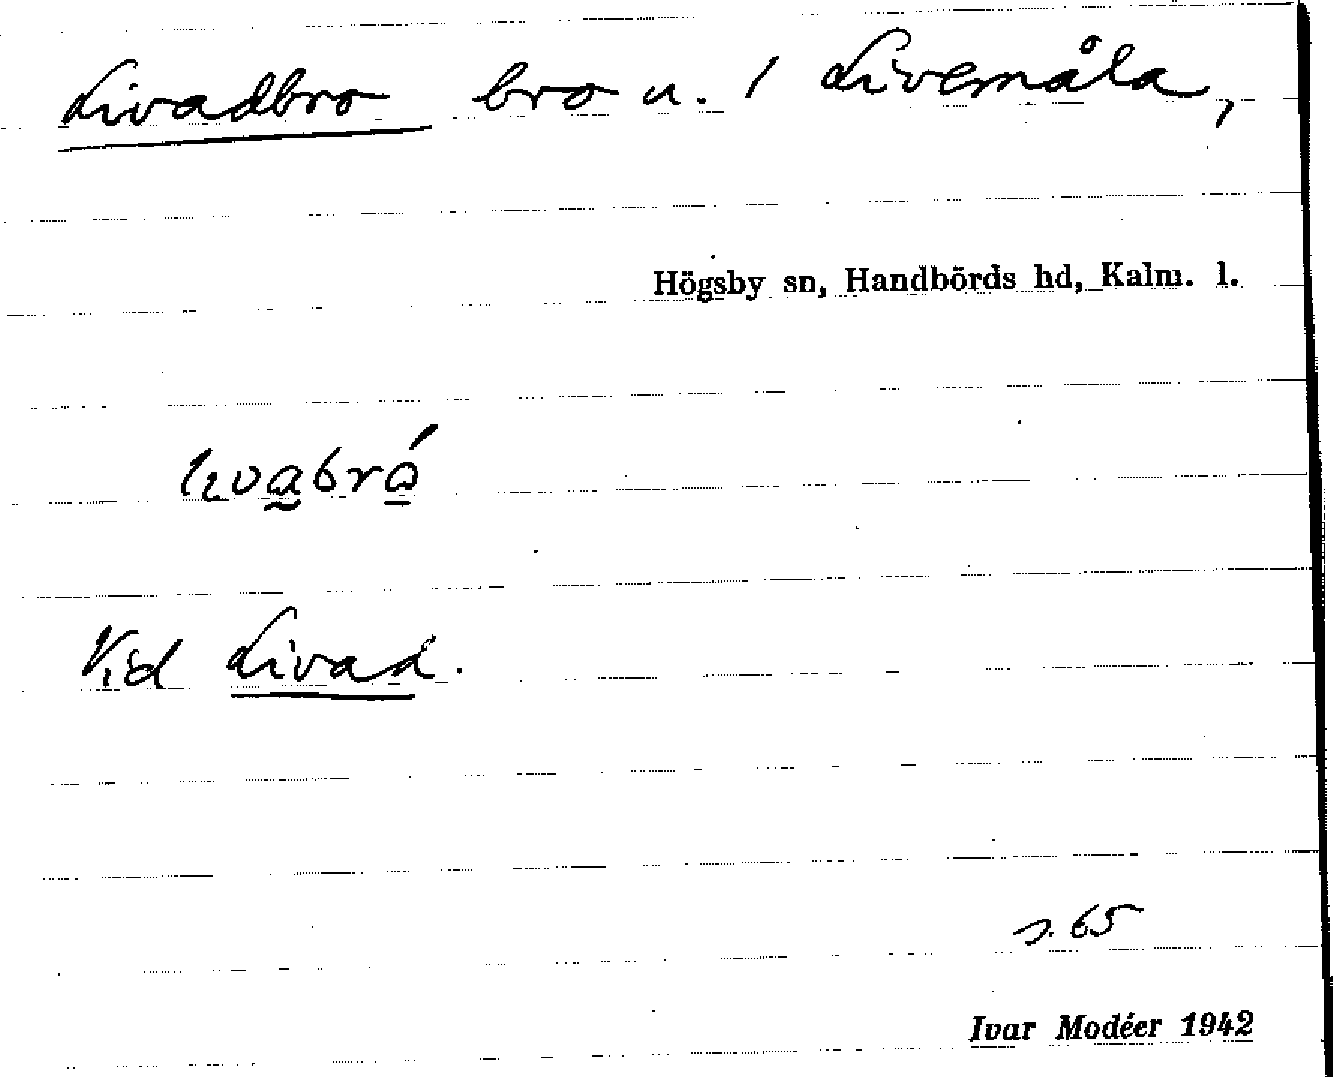 Livadbro bro u. / Livemåla,
Högsby sn, Handbörds hd, Kalm. l.
Vid Livad.
s. 65
Ivar Modéer 1942